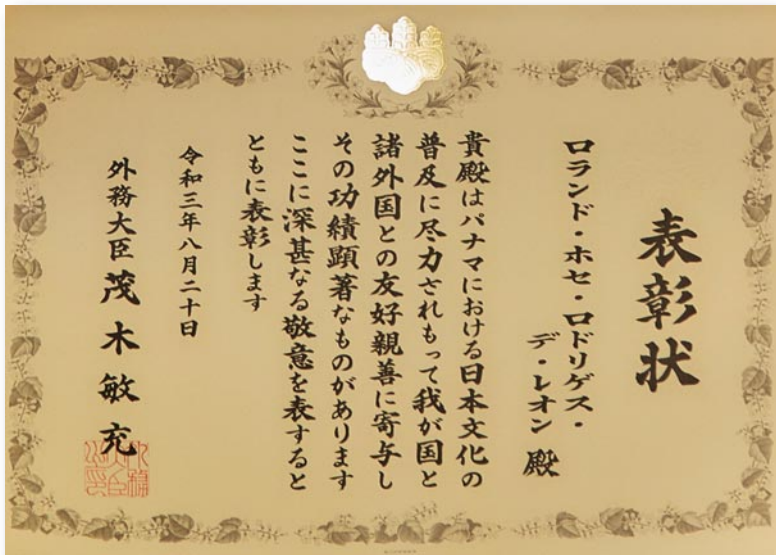 表彰状
ロランド・ホセ・ロドリゲス・
デ・レオン 殿
貴殿はパナマにおける日本文化の
普及に尽力されもって我が国と
諸外国との友好親善に寄与し
その功績顕著なものがあります
ここに深甚なる敬意を表すると
ともに表彰します
令和三年八月二十日
外務大臣 茂木敏充